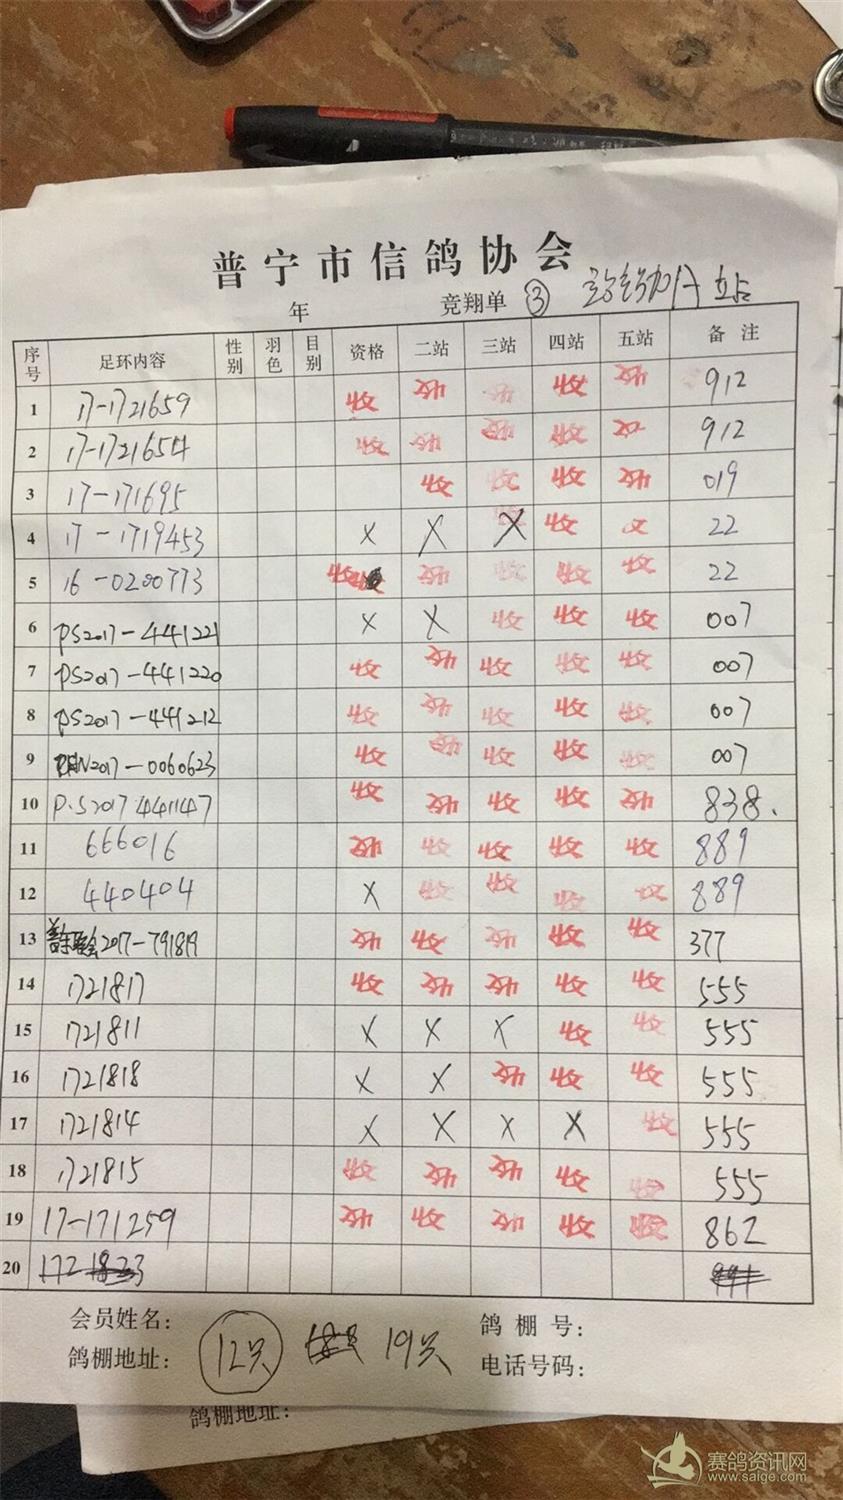 普宁市信鸽协会
年 竞翔单 ③
序号 足环内容 性别 羽色 目别 资格 二站 三站 四站 五站 备注
1 17-1721659 收 收 收 收 收 912
2 17-1721654 收 收 收 收 收 912
3 17-171695 收 收 收 收 019
4 17-1719453 X X X 收 22
5 16-0200773 收 收 收 收 收 22
6 PS2017-441221 X X 收 收 收 007
7 PS2017-441220 收 收 收 收 收 007
8 PS2017-441212 收 收 收 收 收 007
9 2017-0060623 收 收 收 收 收 007
10 P.S2017.441147 收 收 收 收 收 838.
11 666016 收 收 收 收 收 889
12 440404 X 收 收 收 收 889
13 2017-791819 收 收 收 收 收 377
14 1721817 收 收 收 收 收 555
15 1721811 X X X 收 收 555
16 1721818 X X 收 收 收 555
17 1721814 X X X X 收 555
18 1721815 收 收 收 收 收 555
19 17-171259 收 收 收 收 收 862
20
会员姓名: 鸽棚号:
鸽棚地址: 12只 19只 电话号码:
鸽棚地址:
赛鸽资讯网
www.saige.com